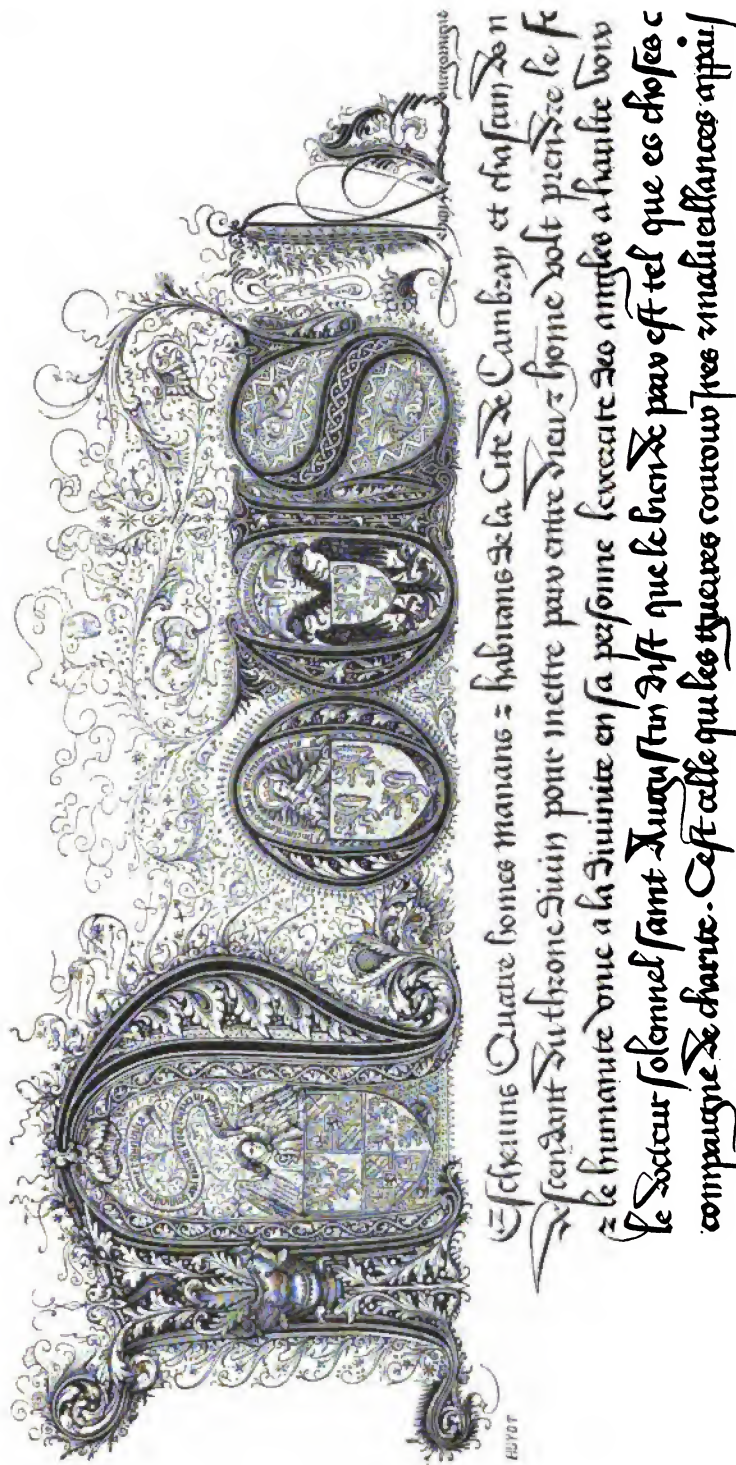 NOUS
Eschevins Quatre homes manans z habitans de la Cite de Cambray et chascun de n
descendant du throne divin pour mettre paix entre dieu z home volt prendre le
z le humanite unie a la divinite en sa personne lexercite des angles a haulte voix
le docteur solemnel saint Augustin dist que le bien de paix est tel que es choses c
compaigne de charite. Cest celle qui les guerres couroux malveillances appais
HUYOT